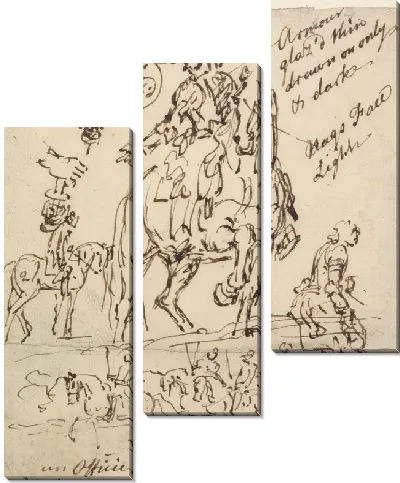 Armour
glaz'd thin
drawn on only
& dark
Hags Face
Light
un Officie